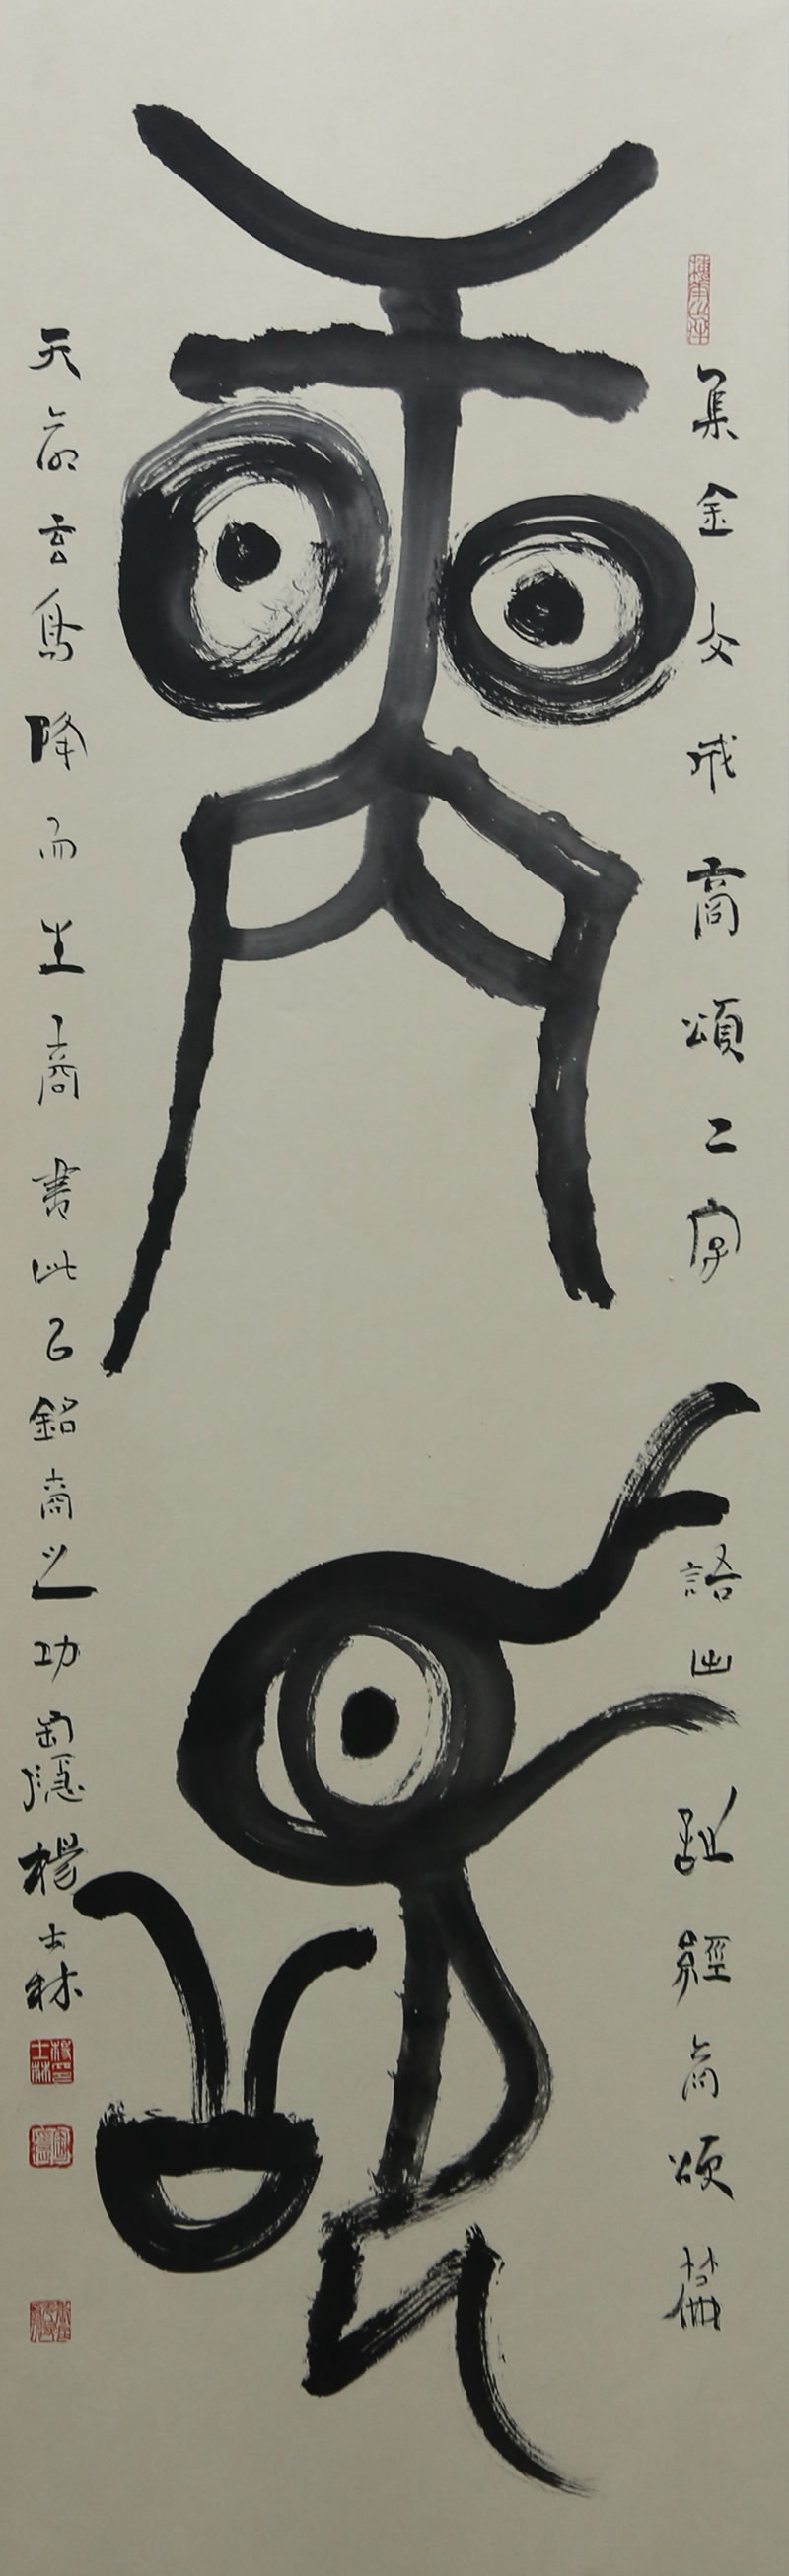 商頌
集金文成商頌二字
語出詩經商頌篇
天命玄鳥降而生商書此以銘商之功匋隱楊士林
楊士林